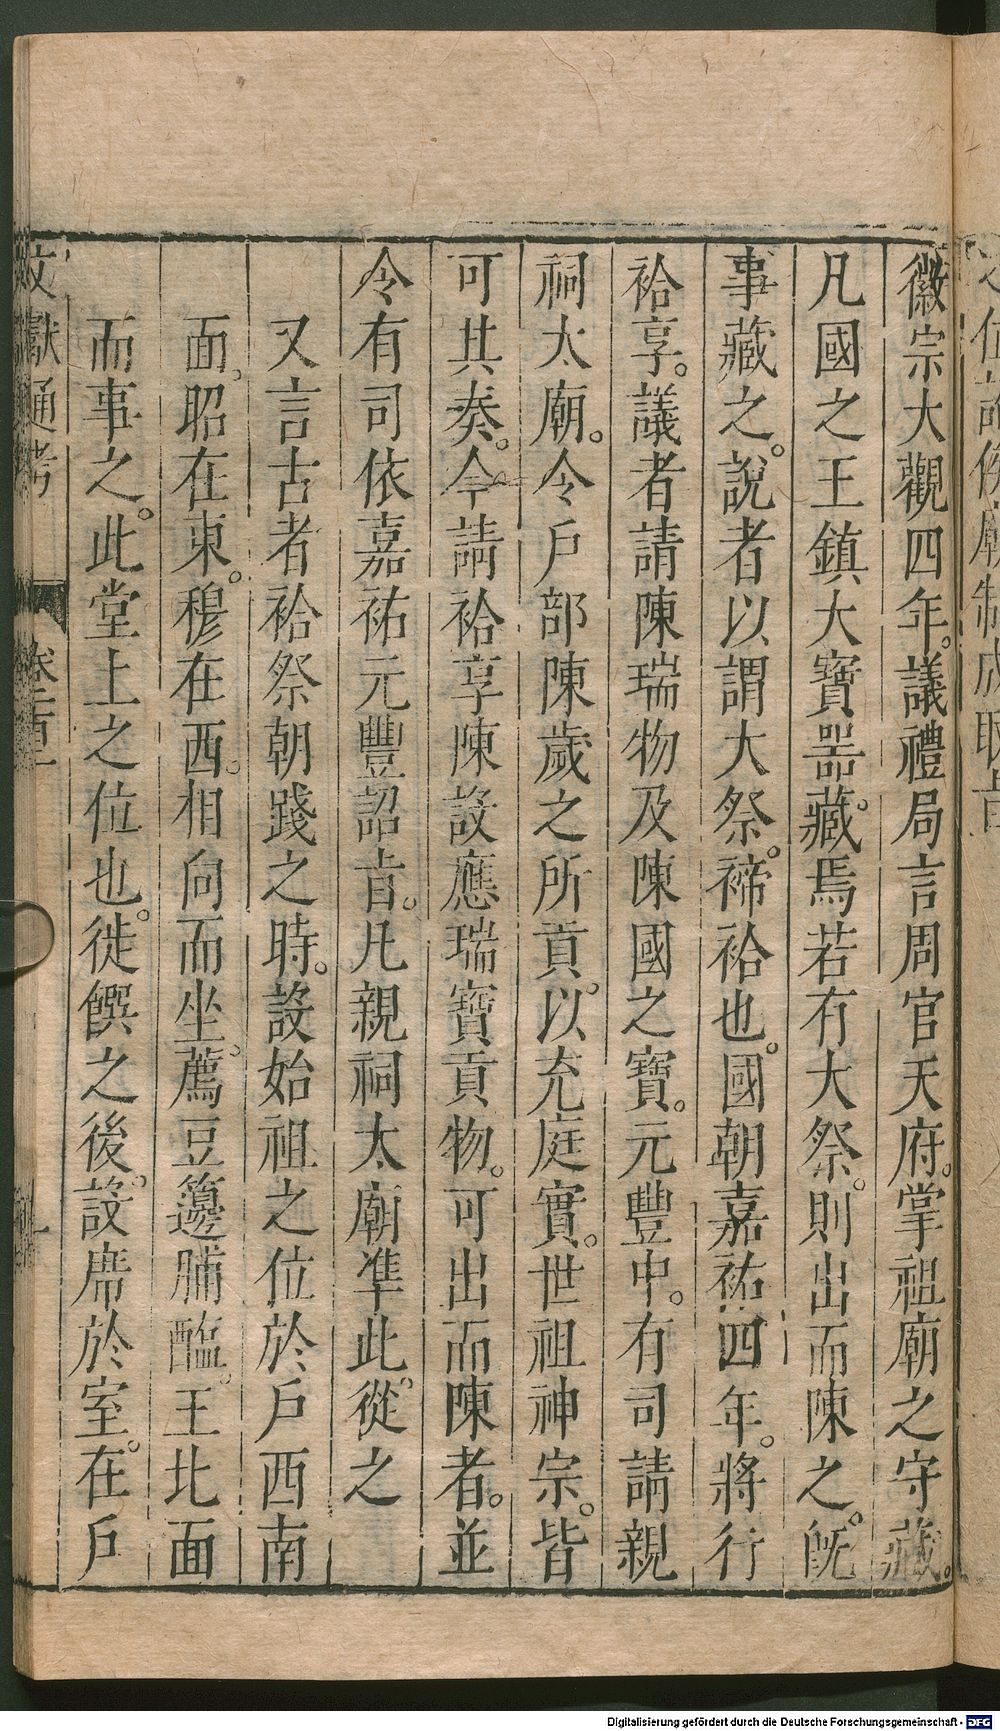 徽宗大觀四年。議禮局言周官天府。掌祖廟之守藏。
凡國之王鎮大寶器藏。焉若有大祭。則出而陳之。旣
事藏之。說者以謂大祭。禘祫也。國朝嘉祐四年。將行
祫享。議者請陳瑞物及陳國之寶。元豐中。有司請親
祠太廟。令戶部陳歲之所貢。以充庭實。世祖神宗。皆
可其奏。今請祫享陳設應瑞寶貢物。可出而陳者。並
令有司依嘉祐元豐詔旨。凡親祠太廟準此。從之
又言古者祫祭朝踐之時。設始祖之位於戶西南
面。昭在東。穆在西。相向而坐。薦豆籩脯醢。王北面
而事之。此堂上之位也。徙饌之後。設席於室。在戶
文獻通考
Digitalisierung gefördert durch die Deutsche Forschungsgemeinschaft - DFG